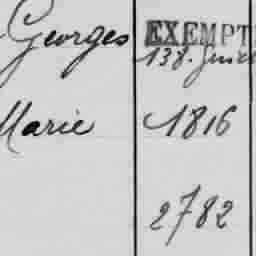 Georges EXEMPT
138.
Marie 1816
2782